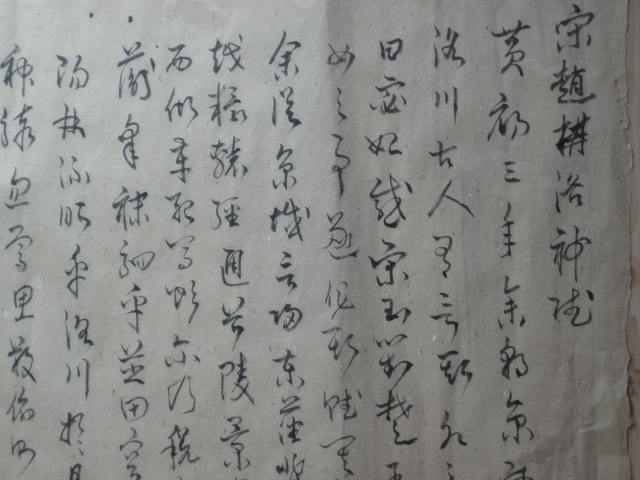 宋趙構洛神賦
黃初三年余朝京師
洛川古人有言斯水之
曰宓妃感宋玉對楚王
女之事遂作斯賦其
余從京域言歸東藩背
越轘轅經通谷陵景
西傾車殆馬煩爾乃稅
蘅皋秣駟乎芝田容
陽林流眄乎洛川於是
神駭忽焉思散俯則